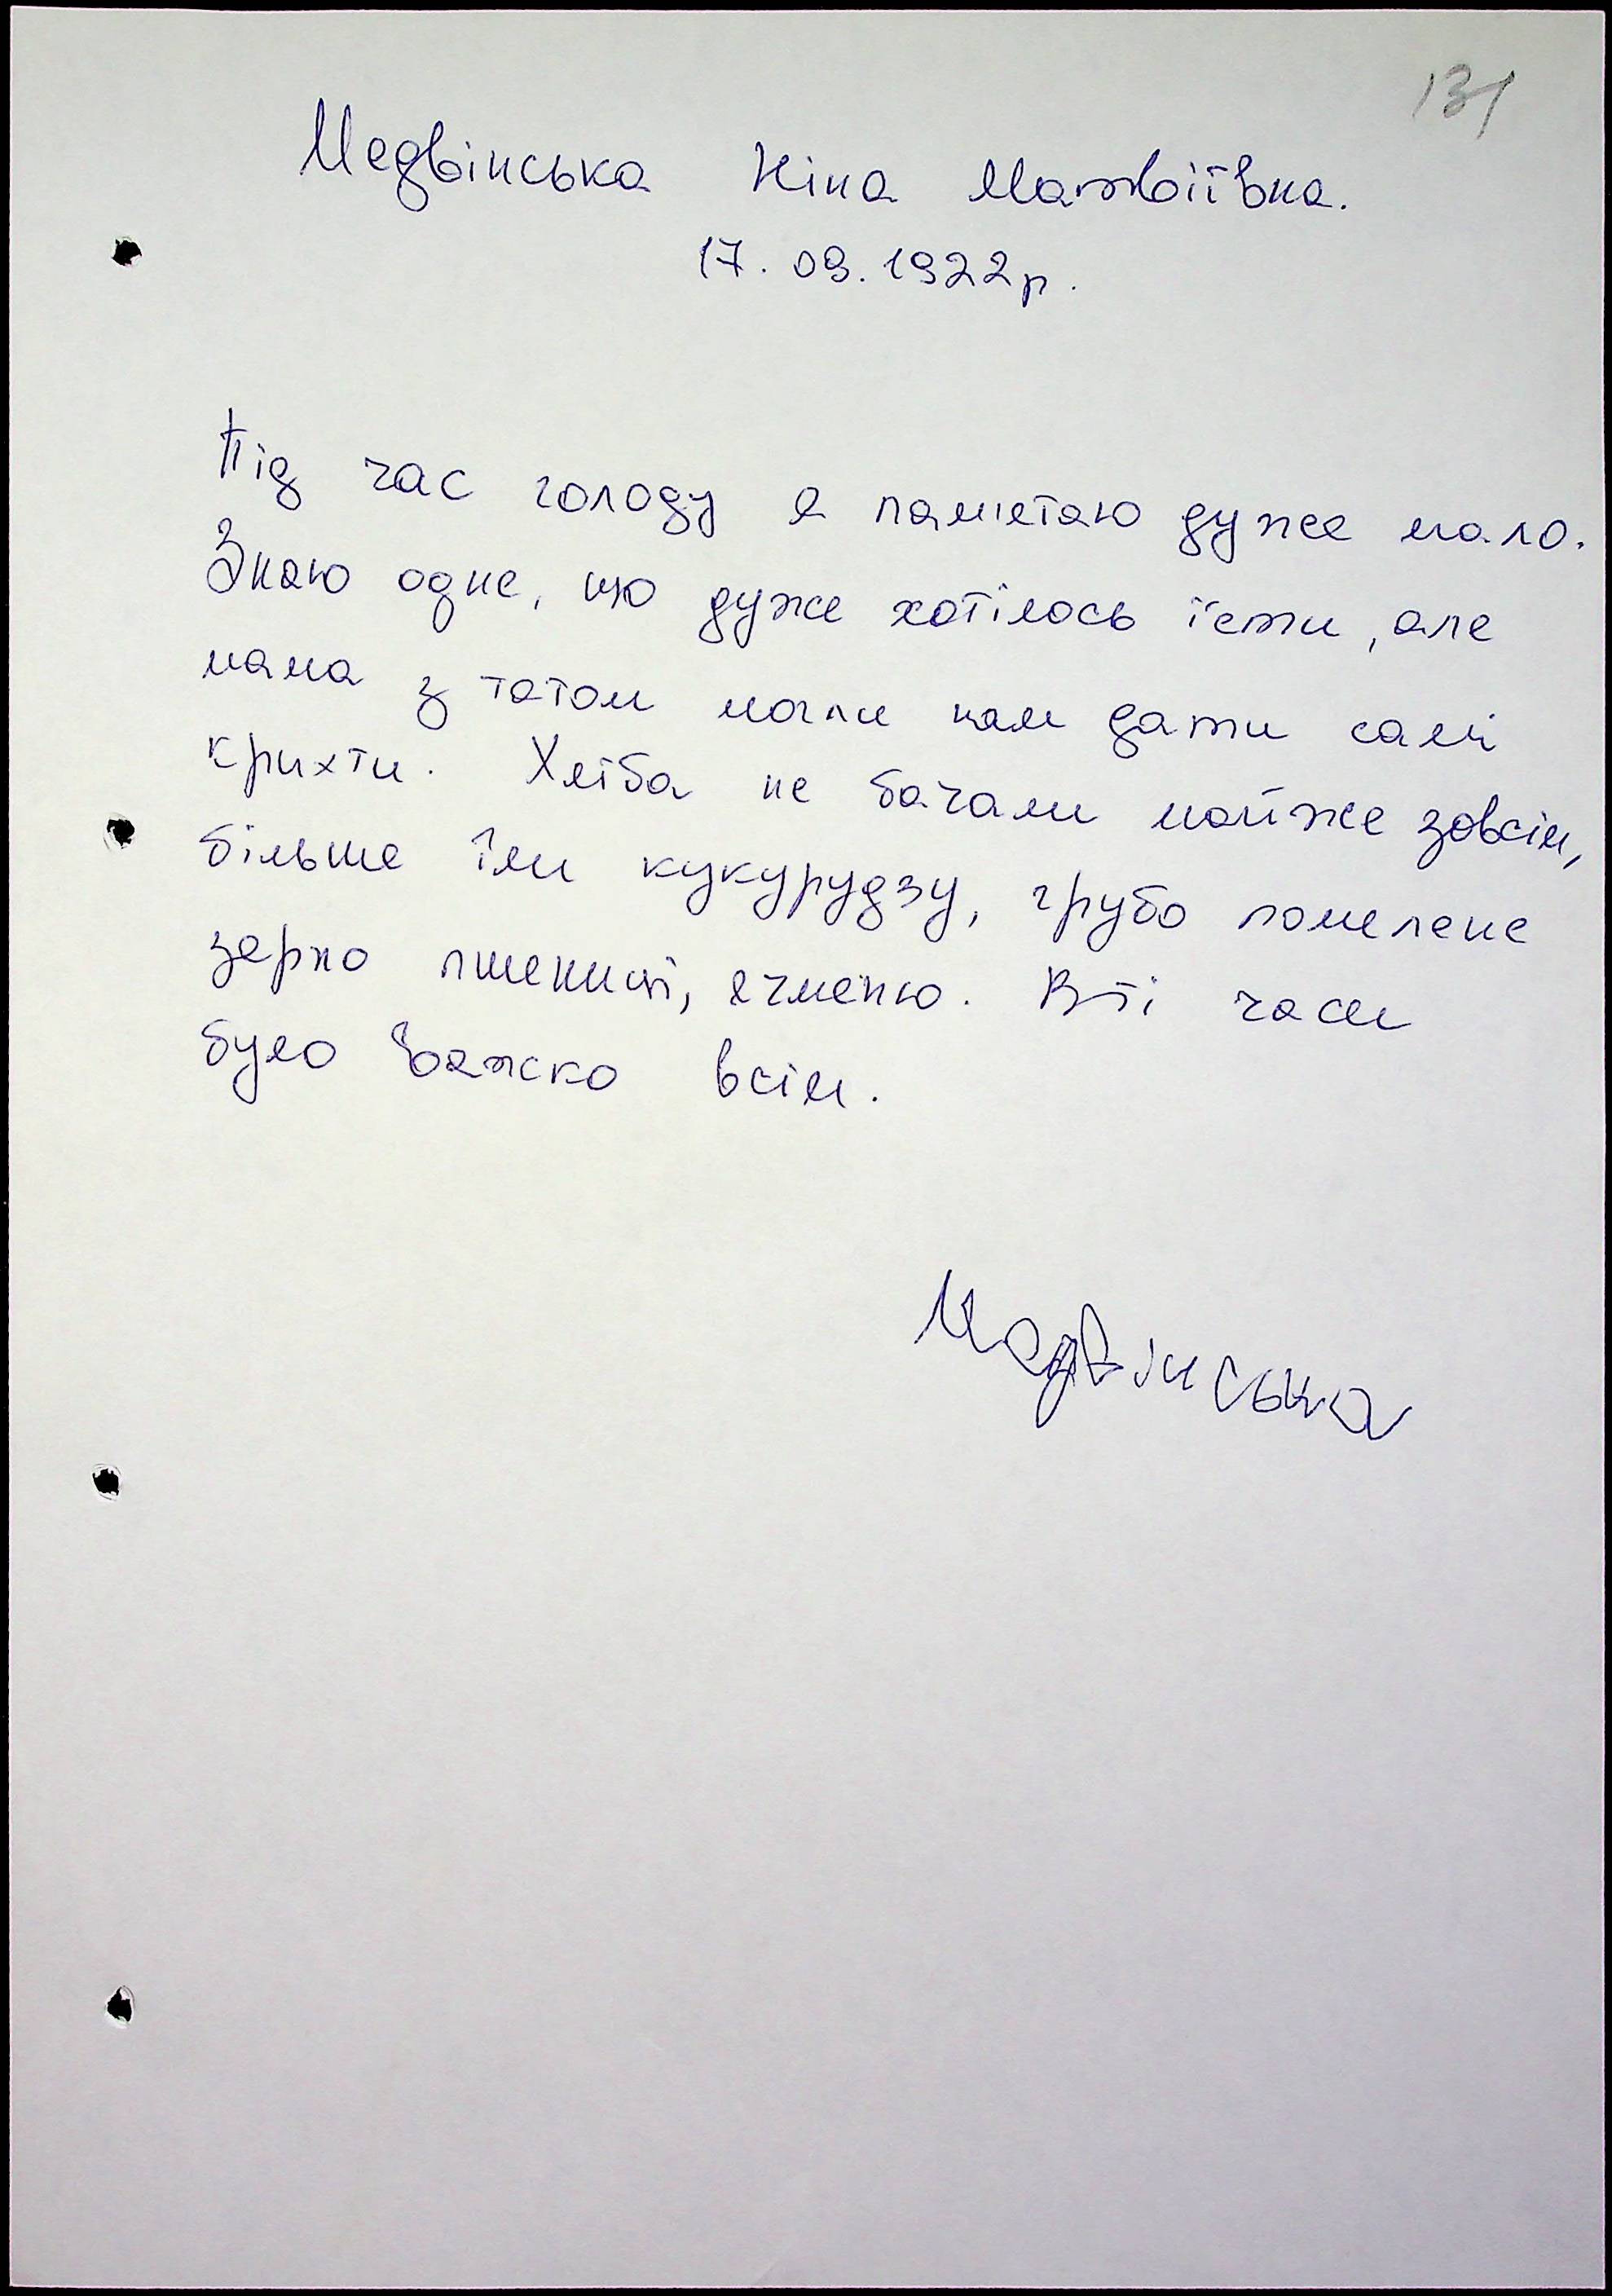 131
Медвінська Ніна Матвіївна.
17. 09. 1922р.
Під час голоду я памʼятаю дуже мало.
Знаю одне, що дуже хотілось їсти, але
мама з татом могли нам дати самі
крихти. Хліба не бачили майже зовсім,
більше їли кукурудзу, грубо помелене
зерно пшениці, ячменю. В ті часи
було важко всім.
Медвінська